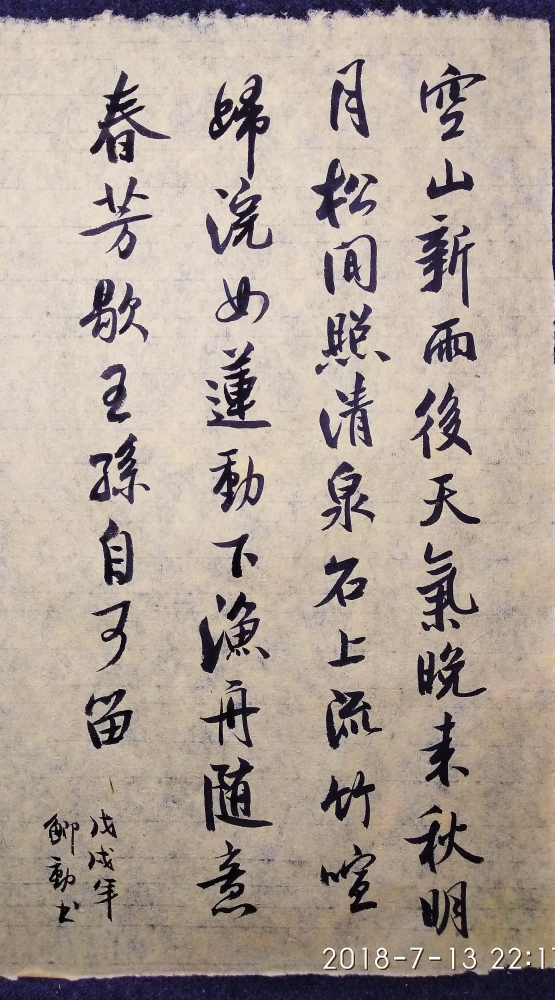 空山新雨後天氣晚来秋明
月松间照清泉石上流竹喧
歸浣女蓮動下漁舟随意
春芳歇王孫自可留
戊戌年
勳书
2018-7-13 22:1